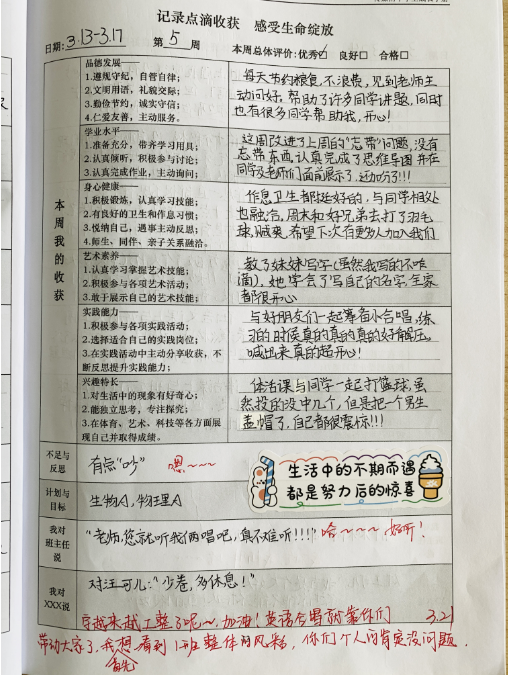 记录点滴收获 感受生命绽放
日期: 3.13-3.17 第 5 周 本周总体评价:优秀☑ 良好□ 合格□
本周我的收获
品德发展——
1.遵规守纪,自管自律;
2.文明用语,礼貌交际;
3.勤俭节约,诚实守信;
4.仁爱友善,主动服务。
每天节约粮食,不浪费,见到老师主
动问好,帮助了许多同学讲题,同时
也有很多同学帮助我,开心!
学业水平——
1.准备充分,带齐学习用具;
2.认真倾听,积极参与讨论;
3.认真完成作业,主动询问;
这周改进了上周的“忘带”问题,没有
忘带东西,认真完成了思维导图并在
同学及老师们面前展示了,还加分了!!!
身心健康——
1.积极锻炼,认真学习技能;
2.有良好的卫生和作息习惯;
3.悦纳自己,遇事主动反思;
4.师生、同伴、亲子关系融洽。
作息卫生都挺好的,与同学相处
也融洽,周末和好兄弟去打了羽毛
球,贼爽,希望下次有更多人加入我们
艺术素养——
1.认真学习掌握艺术技能;
2.积极参与各项艺术活动;
3.敢于展示自己的艺术技能;
教了妹妹写字(虽然我写的不咋
滴),她学会了写自己的名字,全家
都很开心
实践能力——
1.积极参与各项实践活动;
2.选择适合自己的实践岗位;
3.在实践活动中主动分享收获,不
断反思提升实践能力;
与好朋友们一起筹备小合唱,练
习的时候真的真的真的好解压,
喊出来真的超开心!
兴趣特长——
1.对生活中的现象有好奇心;
2.能独立思考,专注探究;
3.在体育、艺术、科技等各方面展
现自己并取得成绩。
体活课与同学一起打篮球,虽
然投的没中几个,但是把一个男生
盖帽了,自己都很震惊!!!
不足与
反思
有点“吵” 嗯~~~~
生活中的不期而遇
都是努力后的惊喜
计划与
目标
生物A,物理A
我对
班主任
说
“老师,您就听我俩唱吧,真不难听!!!” 哈~~~~ 好听!
我对
XXX说
对汪可儿:“少卷,多休息!”
字越来越工整了呢~,加油!英语合唱就靠你们 3.21
带动大家了,我想首先看到1班整体的风貌,你们个人的肯定没问题.